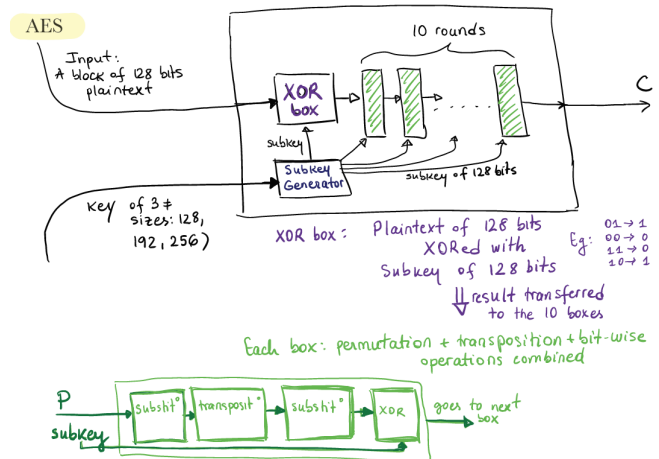 AES
Input:
A block of 128 bits
plaintext
10 rounds
XOR
box
C
subkey
Subkey
Generator
subkey of 128 bits
Key of 3 ≠
sizes: 128,
192, 256)
XOR box: Plaintext of 128 bits
XORed with
Subkey of 128 bits
Eg: 01→1
00→0
11→0
10→1
result transferred
to the 10 boxes
Each box: permutation + transposition + bit-wise
operations combined
P
subkey
substit°
transposit°
substit°
XOR
goes to next
box